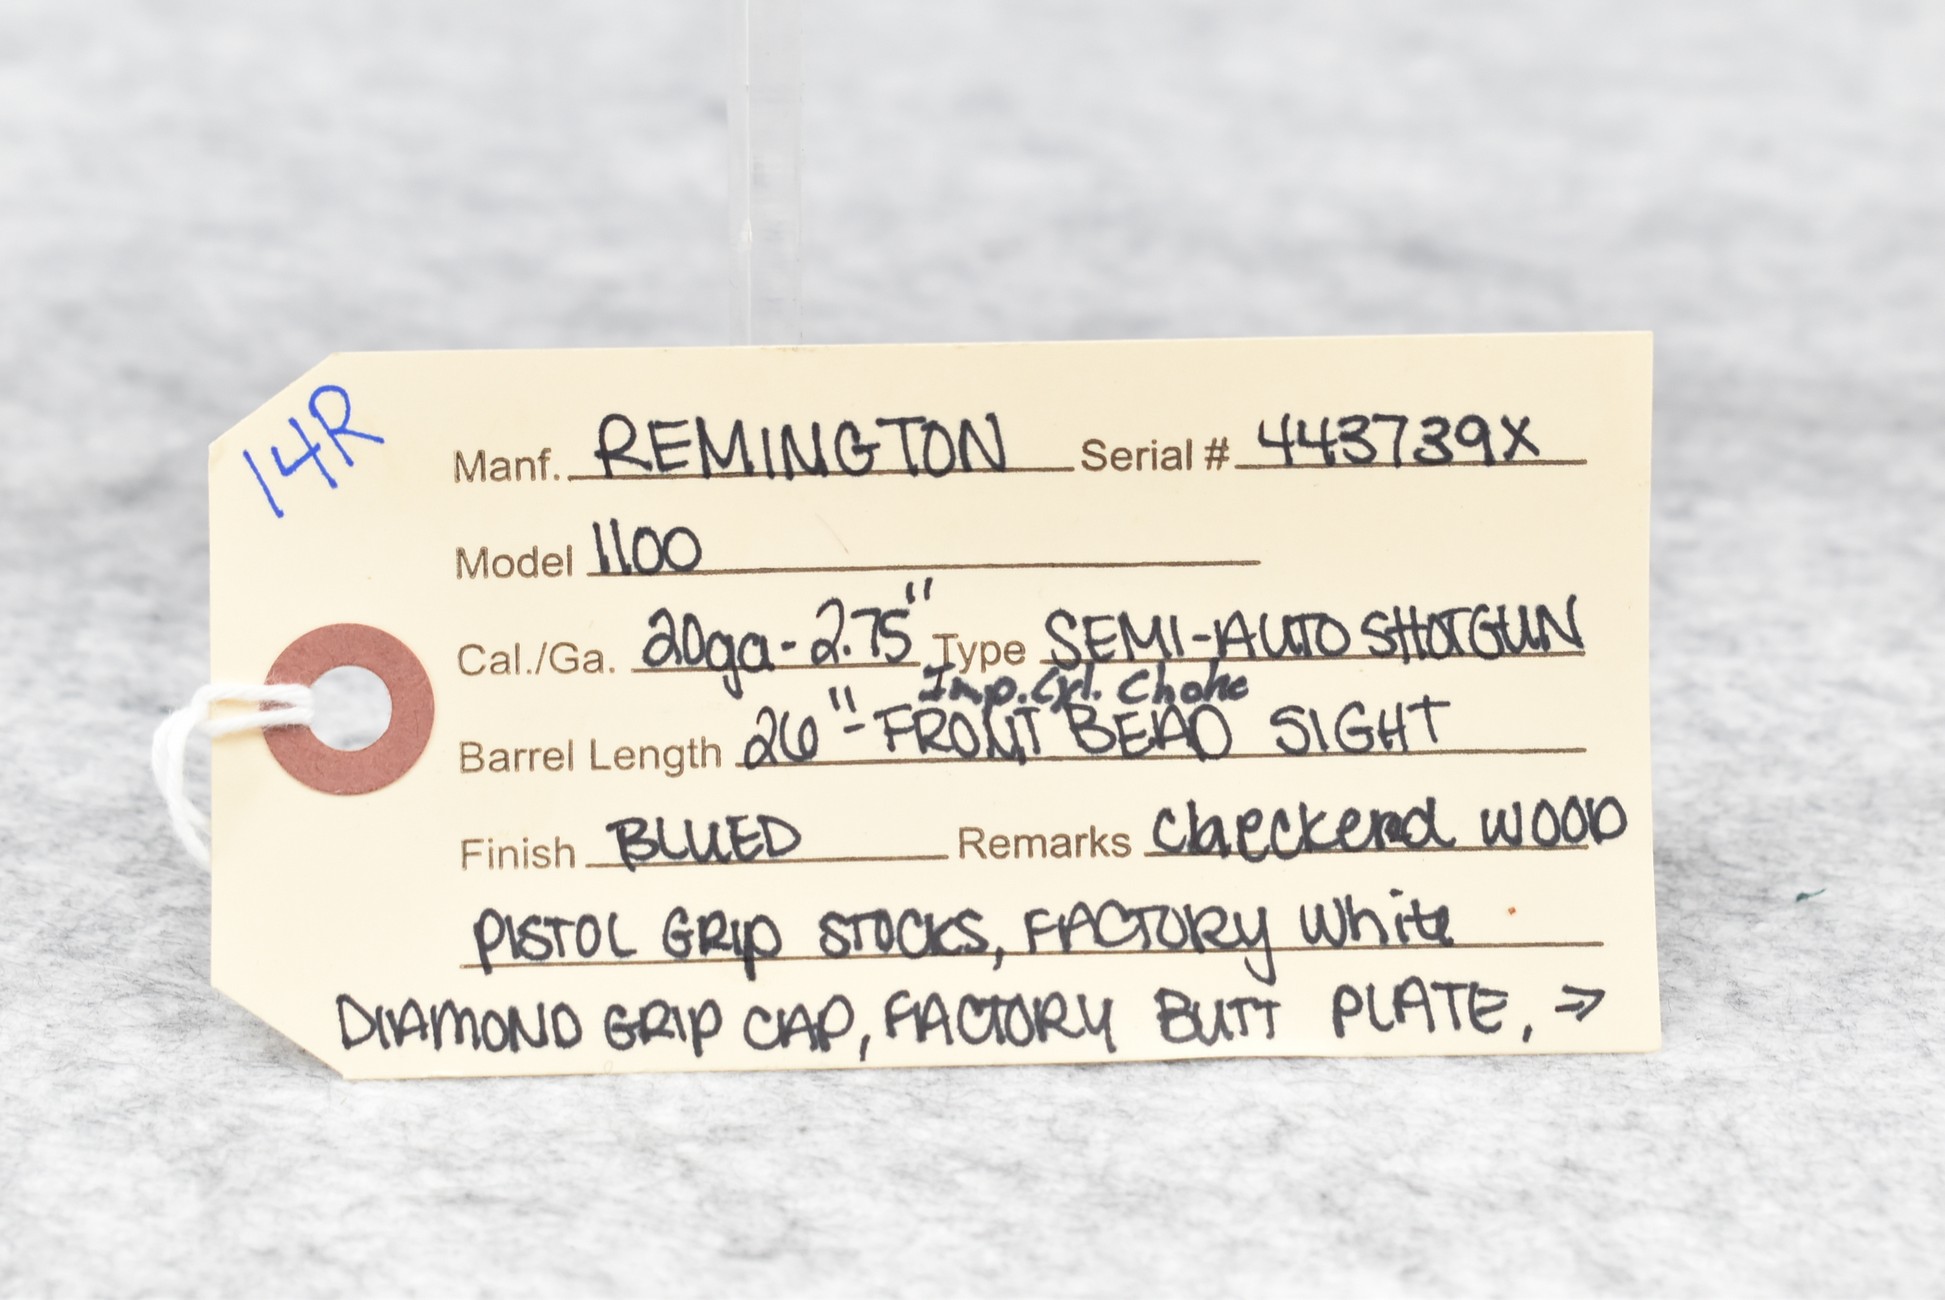 14R
Manf. REMINGTON Serial # 443739X
Model 1100
Cal./Ga. 20ga-2.75" Type SEMI-AUTO SHOTGUN
Imp. Cyl. Choke
Barrel Length 26"-FRONT BEAD SIGHT
Finish BLUED Remarks Checkered WOOD
PISTOL GRIP STOCKS, FACTORY White
DIAMOND GRIP CAP, FACTORY BUTT PLATE, →